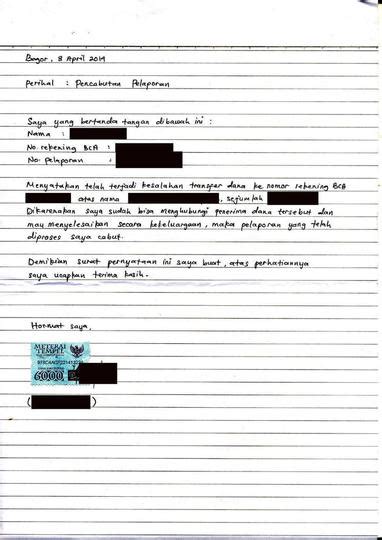 Bogor, 8 April 2019
Perihal : Pencabutan Pelaporan
Saya yang bertanda tangan dibawah ini :
Nama :
No. rekening BCA :
No. Pelaporan :
Menyatakan telah terjadi kesalahan transfer dana ke nomor rekening BCA
atas nama , sejumlah
Dikarenakan saya sudah bisa menghubungi penerima dana tersebut dan
mau menyelesaikan secara kekeluargaan, maka pelaporan yang telah
diproses saya cabut.
Demikian surat pernyataan ini saya buat, atas perhatiannya
saya ucapkan terima kasih.
Hormat saya,
METERAI
TEMPEL
6000
( )